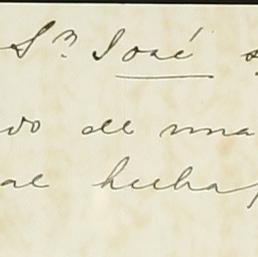 Sn. José
do de una
al hecha,